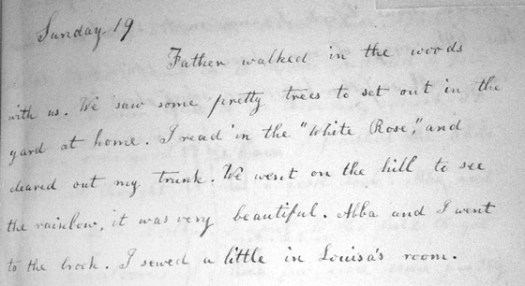 Sunday 19
Father walked in the woods
with us. We saw some pretty trees to set out in the
yard at home. I read in the "White Rose," and
cleared out my trunk. We went on the hill to see
the rainbow, it was very beautiful. Abba and I went
to the brook. I sewed a little in Louisa's room.